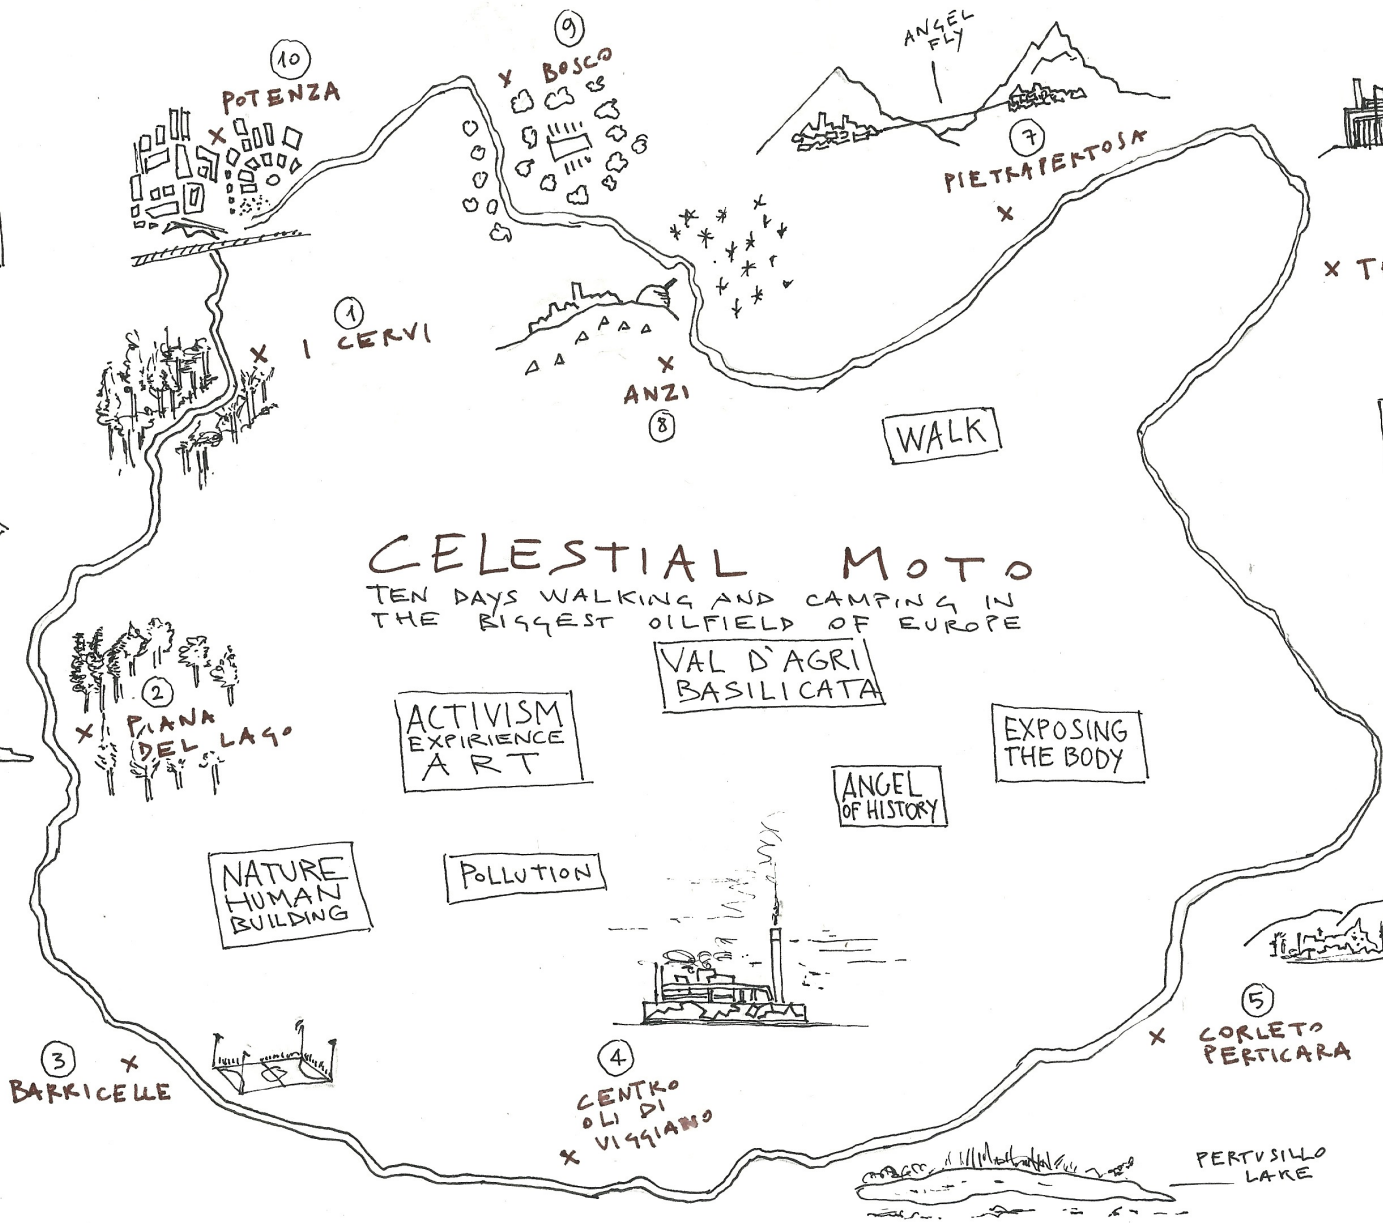 9
10
BOSCO
ANGEL
FLY
POTENZA
7
PIETRAPERTOSA
1
I CERVI
ANZI
8
WALK
CELESTIAL MOTO
TEN DAYS WALKING AND CAMPING IN
THE BIGGEST OILFIELD OF EUROPE
VAL D'AGRI
BASILICATA
2
PIANA
DEL LAGO
ACTIVISM
EXPIRIENCE
ART
EXPOSING
THE BODY
ANGEL
OF HISTORY
NATURE
HUMAN
BUILDING
POLLUTION
5
CORLETO
PERTICARA
3
BARRICELLE
4
CENTRO
OLI DI
VIGGIANO
PERTUSILLO
LAKE